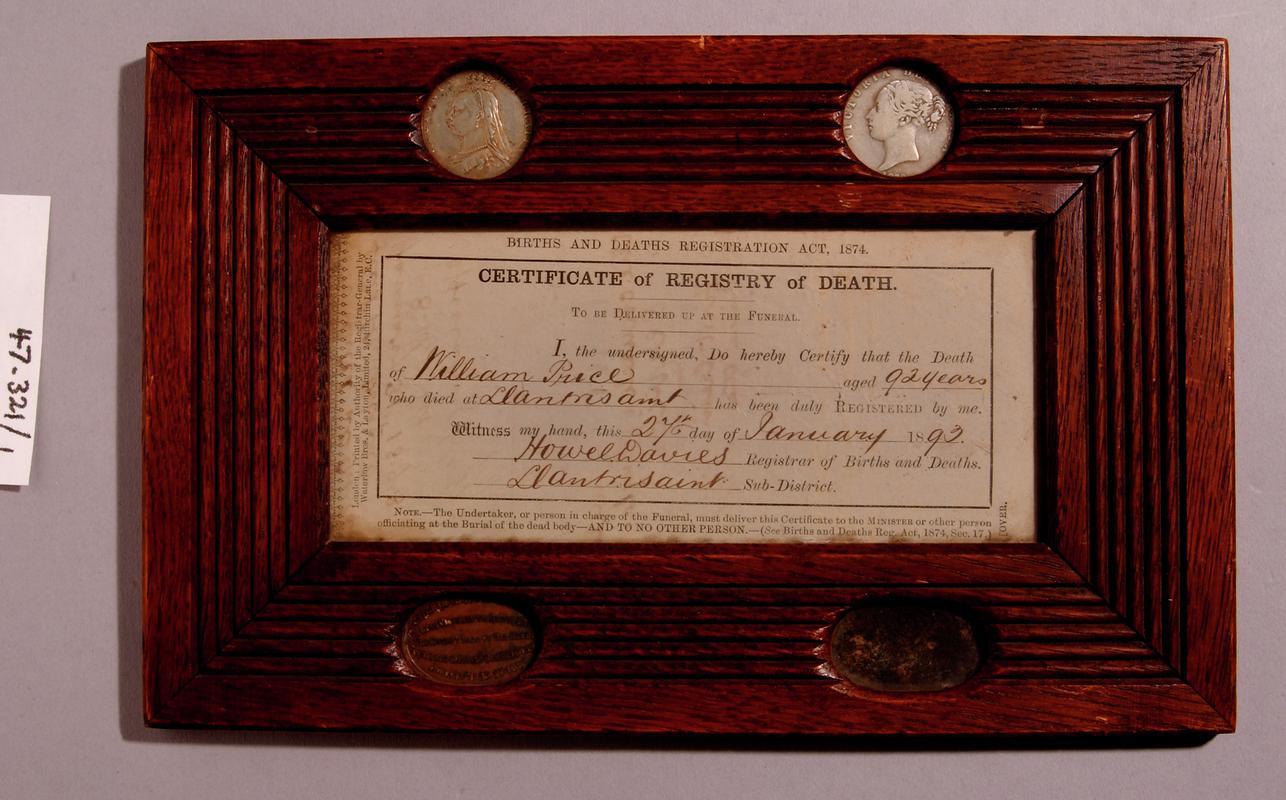 BIRTHS AND DEATHS REGISTRATION ACT, 1874.
CERTIFICATE of REGISTRY of DEATH.
TO BE DELIVERED UP AT THE FUNERAL.
I, the undersigned, Do hereby Certify that the Death
of William Price aged 92 years
who died at Llantrisaint has been duly REGISTERED by me.
Witness my hand, this 27th day of January 1893.
Howel Davies Registrar of Births and Deaths.
Llantrisaint Sub-District.
NOTE.—The Undertaker, or person in charge of the Funeral, must deliver this Certificate to the MINISTER or other person
officiating at the Burial of the dead body—AND TO NO OTHER PERSON.—(See Births and Deaths Reg. Act, 1874, Sec. 17.)
[OVER.
London: Printed by Authority of the Registrar-General by
Waterlow Bros. & Layton, Limited, 24, Birchin Lane, E.C.
VICTORIA
47.321/1